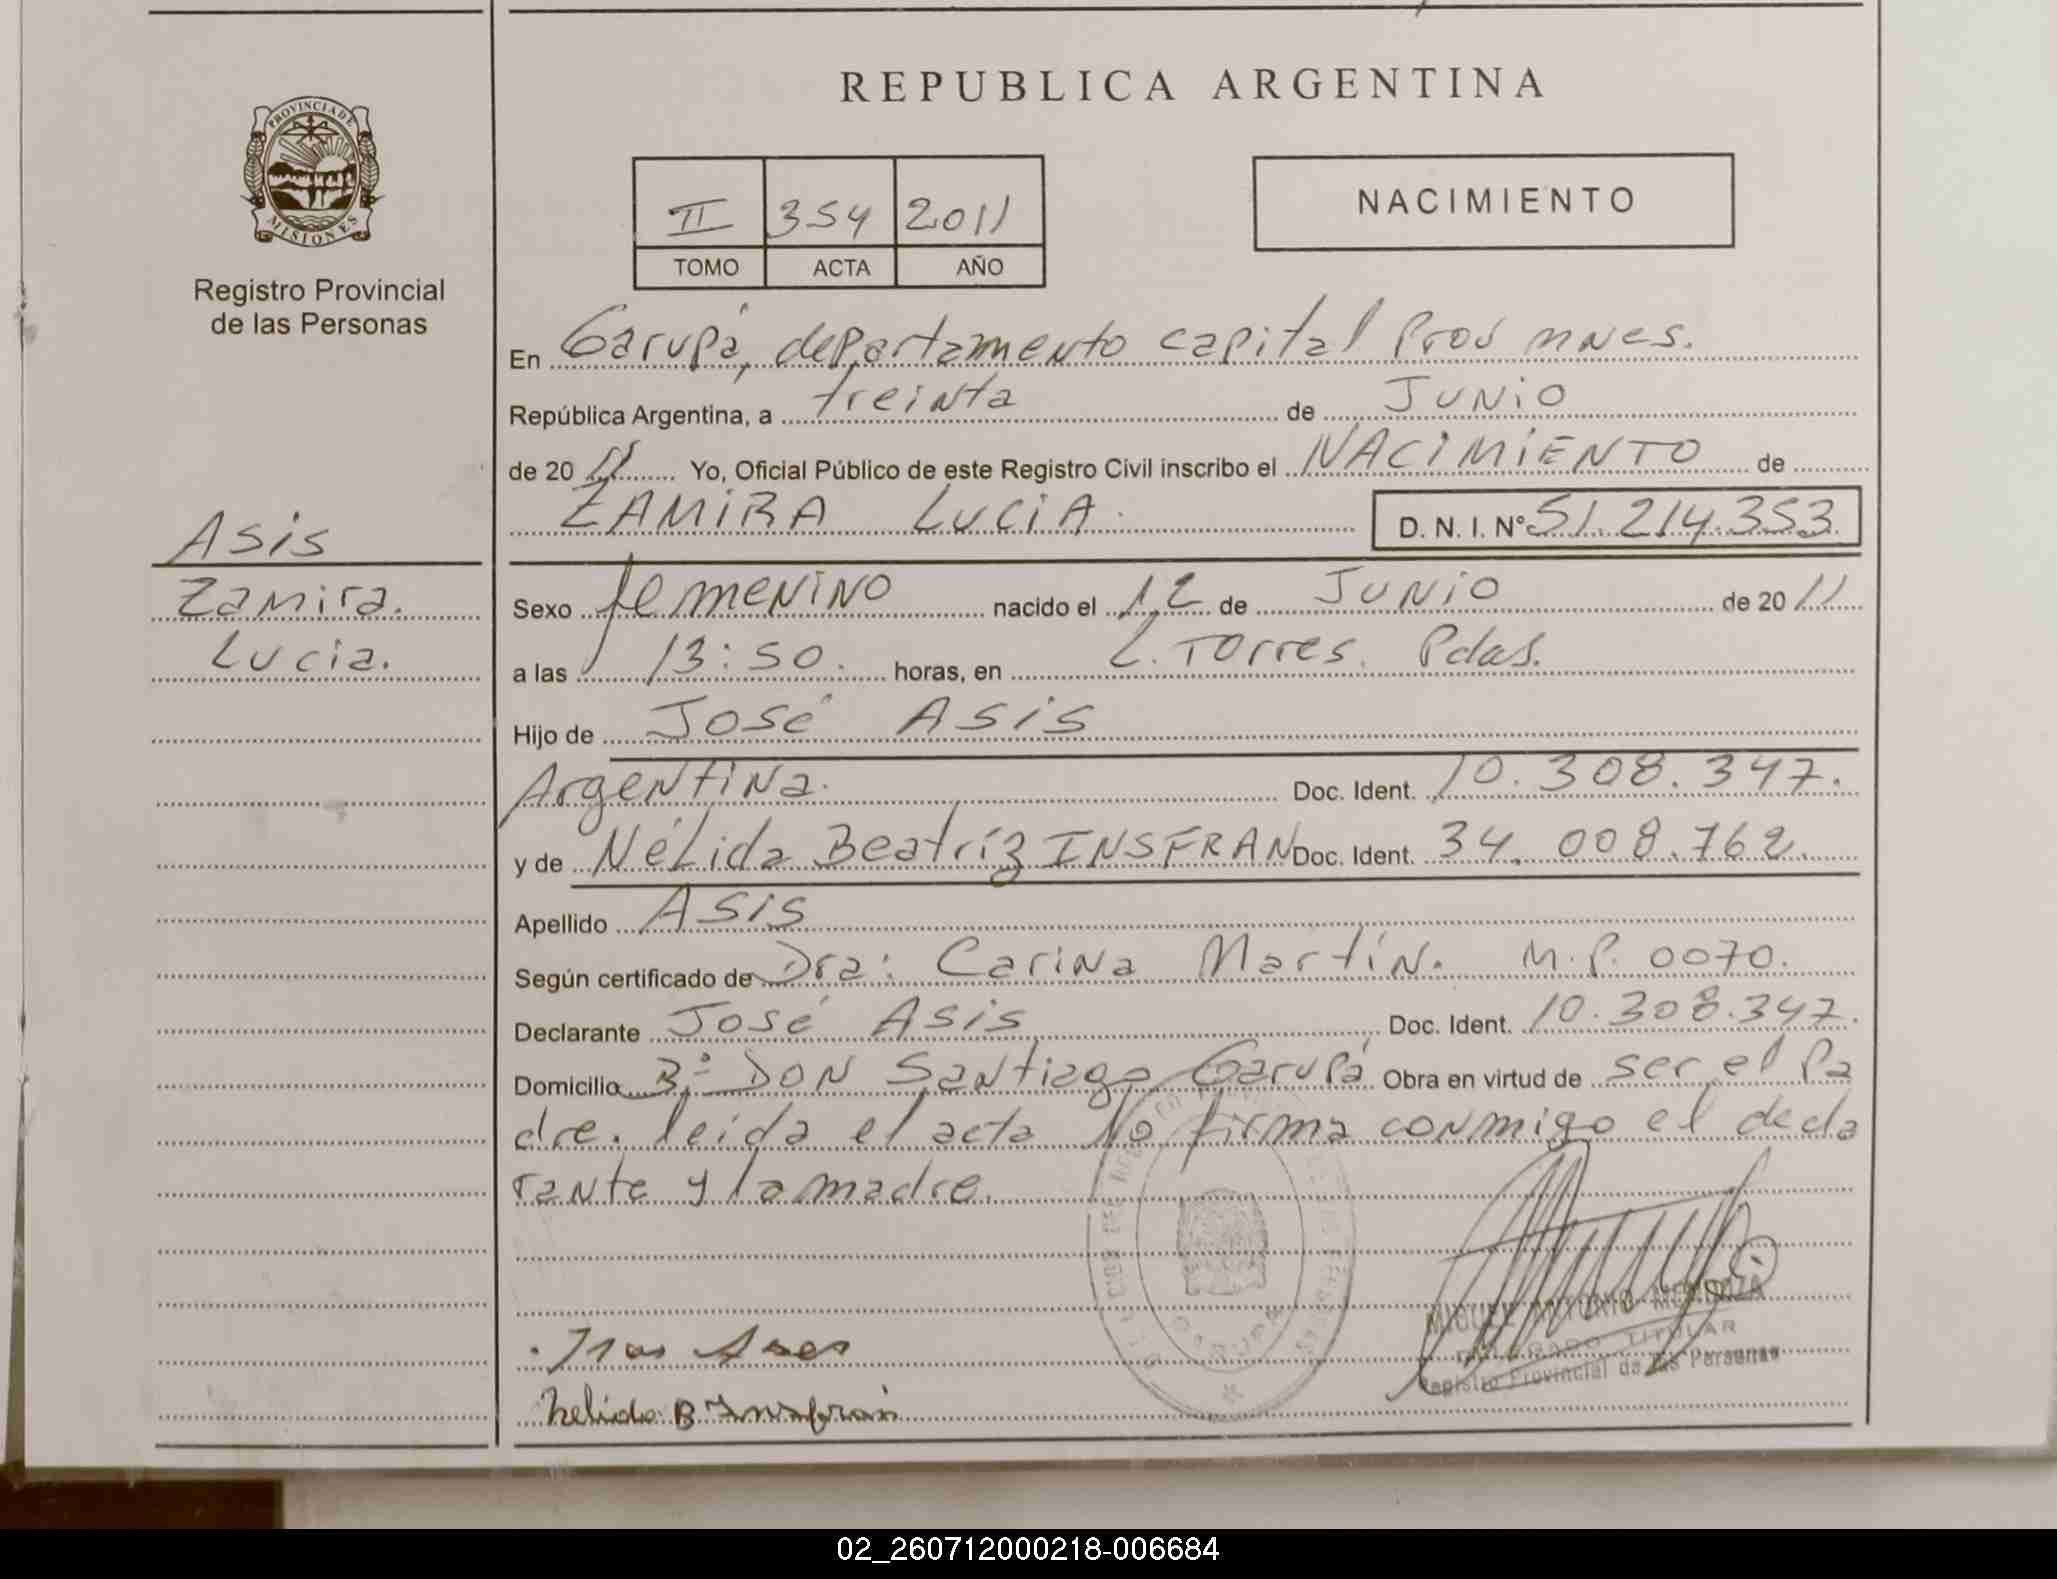 REPUBLICA ARGENTINA
PROVINCIA DE
MISIONES
Registro Provincial
de las Personas
II 354 2011
TOMO ACTA AÑO
NACIMIENTO
En Garupá, departamento capital Prov mnes.
República Argentina, a treinta de Junio
de 20 11 Yo, Oficial Público de este Registro Civil inscribo el NACIMIENTO de
ZAMIRA LUCIA. D. N. I. N° 51.214.353
Asis
Zamira.
Lucia.
Sexo femenino nacido el 12 de Junio de 20 11
a las 13:50. horas, en L. Torres. Pdas.
Hijo de José Asis
Argentina. Doc. Ident. 10.308.347.
y de Nélida Beatríz INSFRAN Doc. Ident. 34.008.762.
Apellido Asis
Según certificado de Dra: Carina Martín. M.P. 0070.
Declarante José Asis Doc. Ident. 10.308.347.
Domicilio B° DON Santiago Garupá Obra en virtud de ser el Pa
dre. leida el acta la firma conmigo el decla
rante y la madre.
GARUPA
MIGUEL ANTONIO MENDOZA
DELEGADO TITULAR
Registro Provincial de las Personas
Nelida B Insfran
02_260712000218-006684